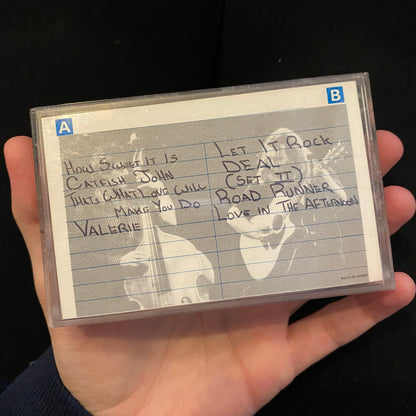 A
B
How Sweet It Is
Catfish John
That's What Love Will
Make You Do
Valerie
Let It Rock
Deal
(Set II)
Road Runner
Love in The Afternoon